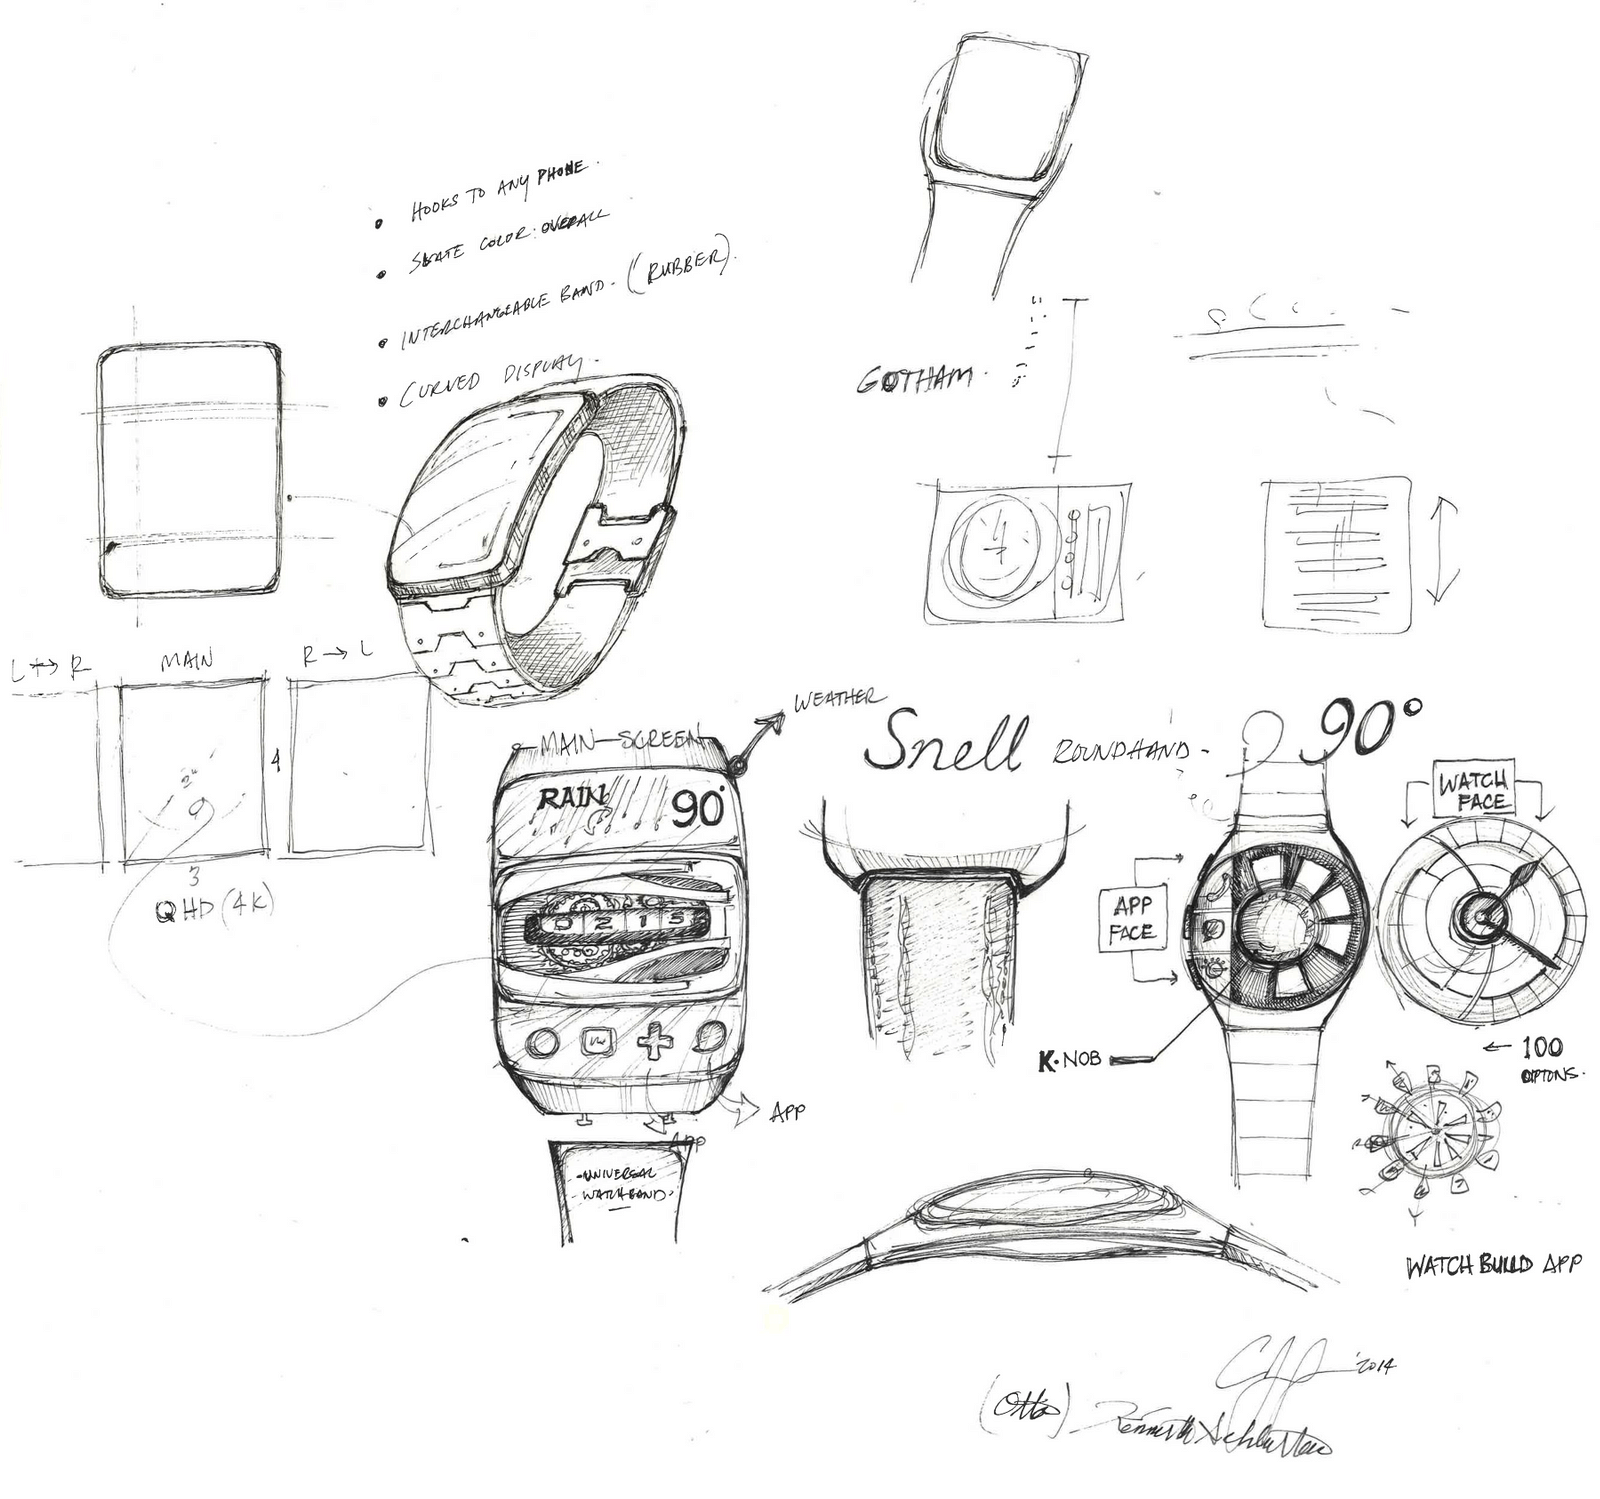 • HOOKS TO ANY PHONE.
• SLATE COLOR. OVERALL
• INTERCHANGEABLE BAND. (RUBBER).
• CURVED DISPLAY.
GOTHAM.
L ↔ R
MAIN
R → L
4
3
QHD (4K)
MAIN SCREEN
WEATHER
RAIN
90°
0 2 1 5
APP
APP
-UNIVERSAL
WATCHBAND-
Snell ROUNDHAND-
90°
WATCH
FACE
APP
FACE
K·NOB
← 100
OPTONS.
WATCH BUILD APP
'2014
(Otto)